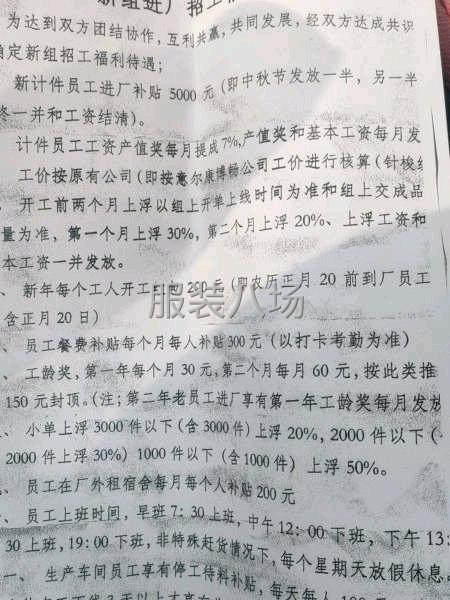 新组进厂招工
为达到双方团结协作,互利共赢,共同发展,经双方达成共识
确定新组招工福利待遇;
新计件员工进厂补贴 5000 元(即中秋节发放一半,另一半
终一并和工资结清)。
计件员工工资产值奖每月提成 7%,产值奖和基本工资每月发
工价按原有公司(即按意尔康博畅公司工价进行核算(针梭织
开工前两个月上浮以组上开单上线时间为准和组上交成品
量为准,第一个月上浮 30%,第二个月上浮 20%、上浮工资和
本工资一并发放。
、新年每个工人开工红包 200 元(即农历正月 20 前到厂员工
含正月 20 日)
、员工餐费补贴每个月每人补贴 300 元(以打卡考勤为准)
、工龄奖,第一年每个月 30 元,第二个月每月 60 元,按此类推
150 元封顶。(注;第二年老员工进厂享有第一年工龄奖每月发放
、小单上浮 3000 件以下(含 3000 件)上浮 20%,2000 件以下(
2000 件上浮 30%)1000 件以下(含 1000 件)上浮 50%。
、员工在厂外租宿舍每月每个人补贴 200 元
、员工上班时间,早班 7:30 上班,中午 12:00 下班,下午 13:
30 上班,19:00 下班,非特殊赶货情况下,每个星期天放假休息。
一、生产车间员工享有停工待料补贴,每天每人 100
服装八场